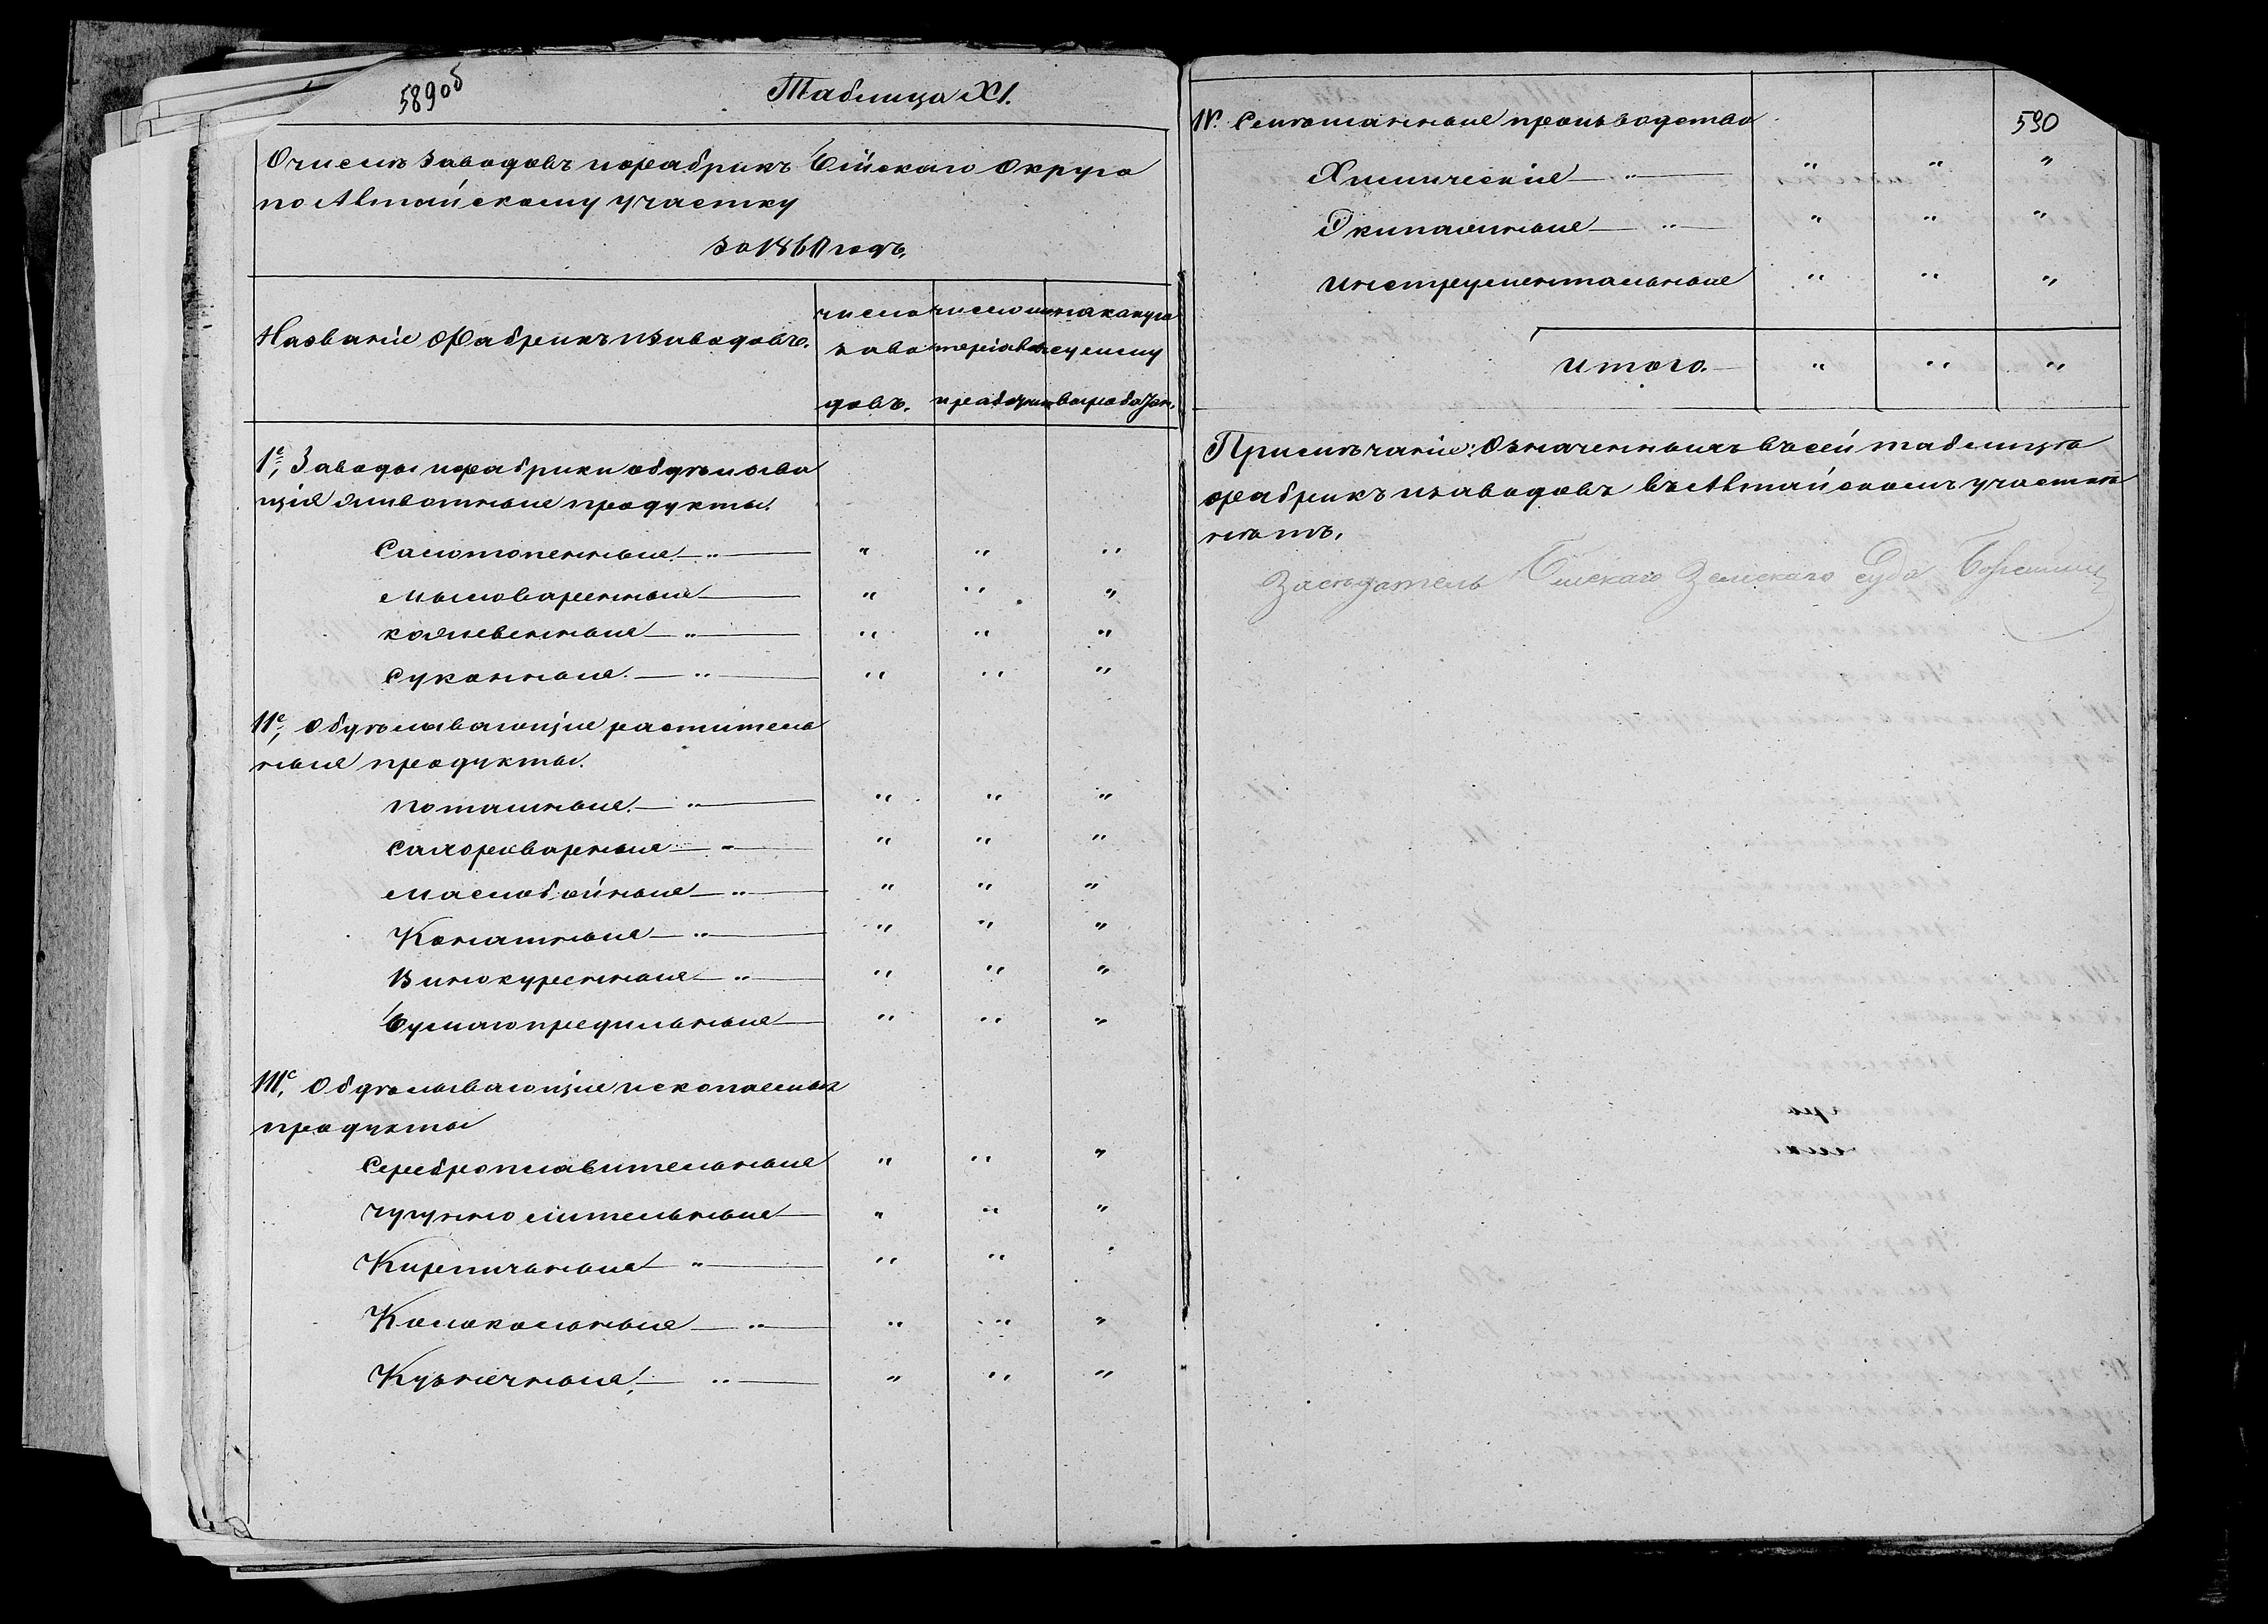 589об
Таблица XI.
О числѣ заводовъ и фабрикъ Бійскаго Округа
по Алтайскому участку
за 1860 годъ.
Названіе фабрикъ и заводовъ.
число
заво
довъ.
число ма
теріавовъ
и рабочихъ
на какую
сумму
выработан.
Iе, Заводы и фабрики обдѣлыва
щія животные продукты.
Салотопенные — „ —
Мыловаренные — „ „ „
кожевенные — „ — „ „ „
Суконные. — „ — „ „ „
IIе, Обдѣлывающіе раститель
ные продукты.
поташные. — „ — „ „ „
Сахороварные — „ — „ „ „
маслобойные — „ — „ „ „
Канатные — „ — „ „ „
Винокуренные — „ — „ „ „
Бумагопредильные — „ „ „
IIIе, Обдѣлывающіе ископаемыя
продукты
Сереброплавительные „ „ „
чугунно литейльные — „ „ „
Кирпичьные — „ — „ „
Колокольные — „ — „ „ „
Кузнечные. — „ — „ „ „
590
IV. Смѣшанные произъводства
Химическіе — „ — „ „ „
Экипажные — „ — „ „ „
инструментальные „ „ „
итого. — „ „ „
Примѣчаніе: Означенныхъ въ сей таблицѣ
фабрикъ и заводовъ въ Алтайскомъ участкѣ
нѣтъ.
Засѣдатель Бійскаго Земскаго суда